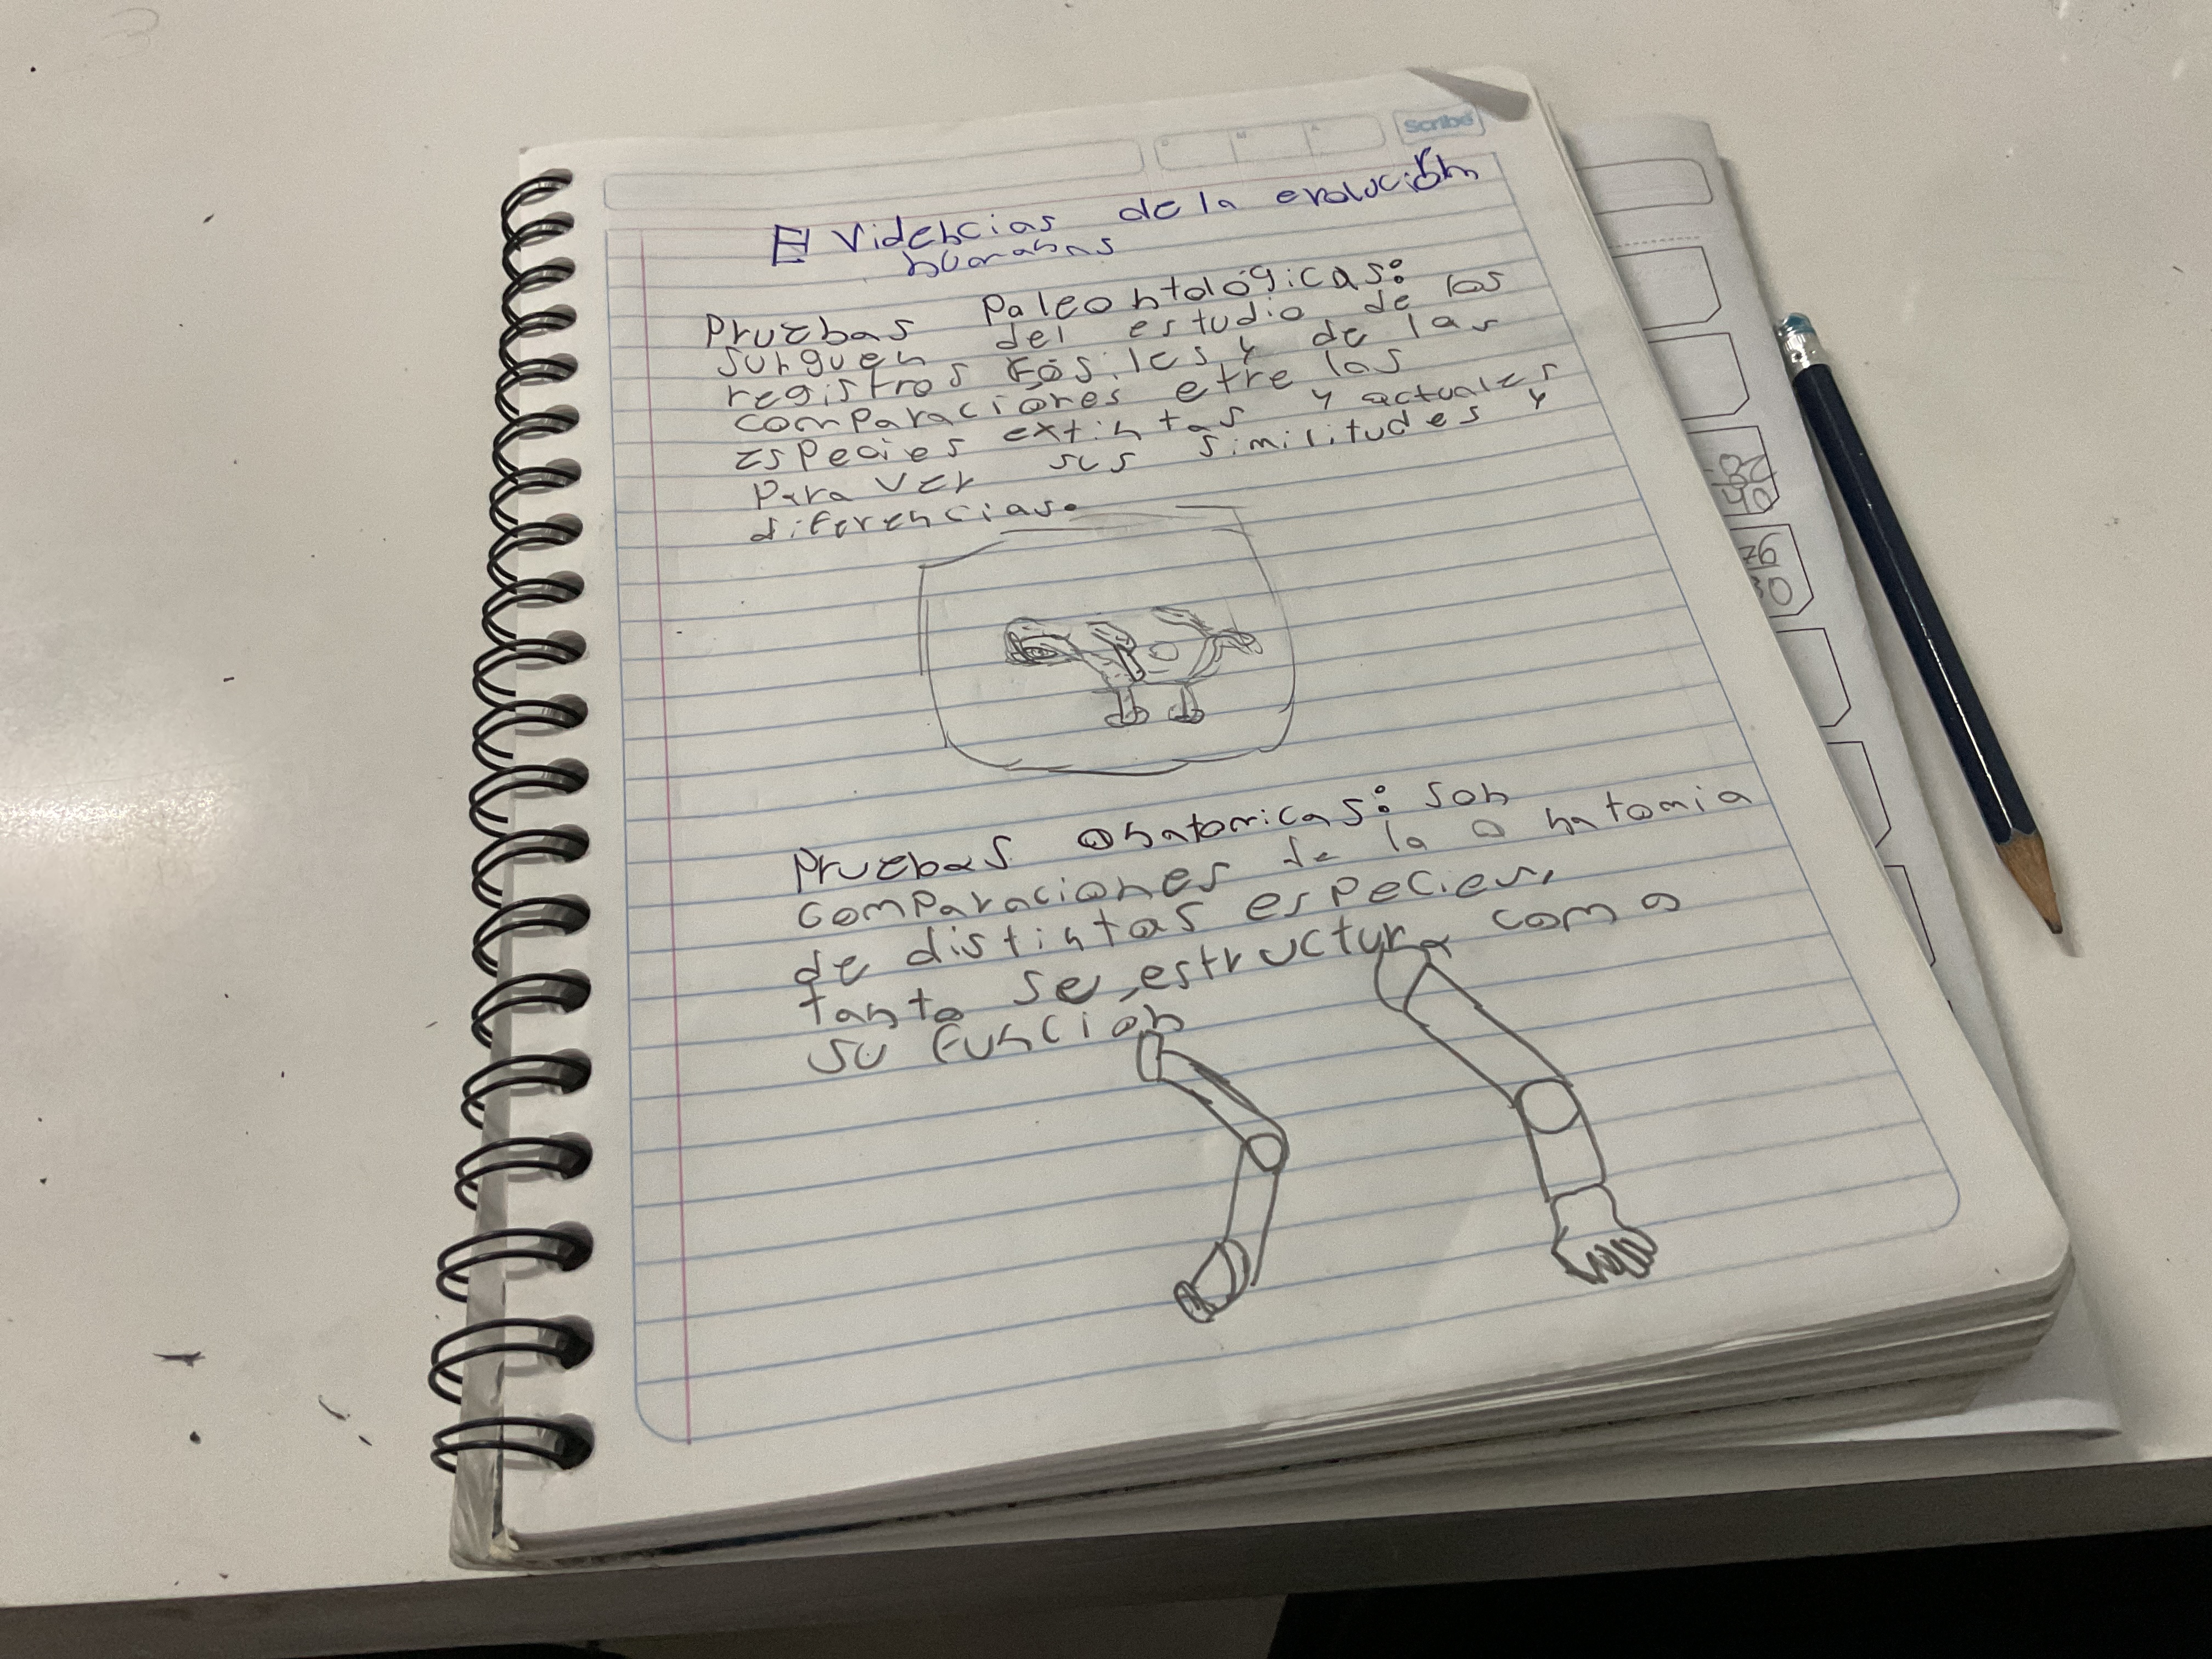 Scribe
Evidencias de la evolución
humanas
Pruebas Paleontológicas:
surguen del estudio de los
registros fósiles y de las
comparaciones etre las
especies extintas y actuales
para ver sus similitudes y
diferencias.
Pruebas anatomicas: son
comparaciones de la anatomia
de distintas especies,
tanto se estructura como
su funcion